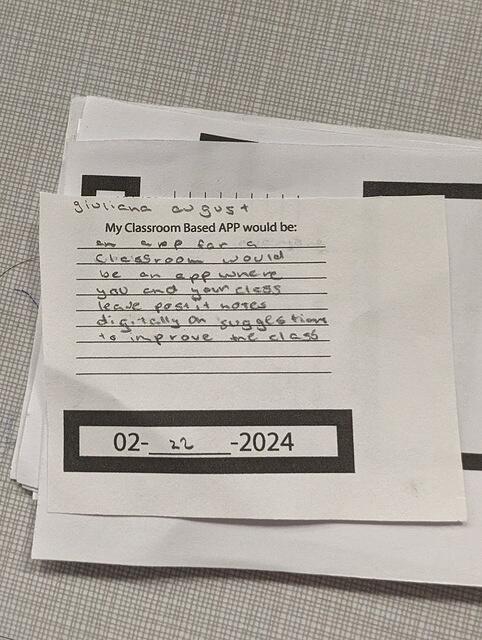 giuliana august
My Classroom Based APP would be:
an app for a
classroom would
be an app where
you and your class
leave post it notes
digitally on suggestions
to improve the class
02-22-2024